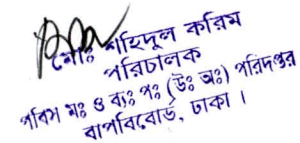 মোঃ শহিদুল করিম
পরিচালক
পবিস মঃ ও ব্যঃ পঃ (উঃ অঃ) পরিদপ্তর
বাপবিবোর্ড, ঢাকা।